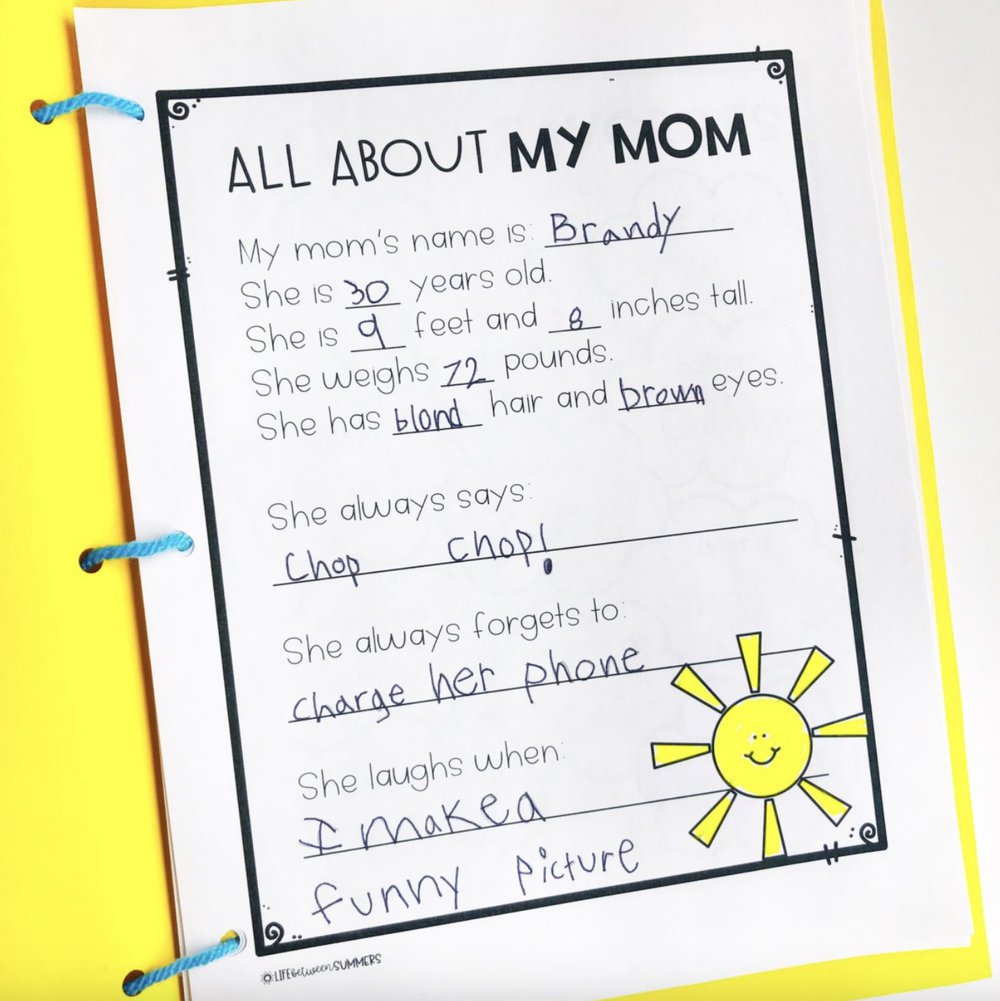 ALL ABOUT MY MOM
My mom's name is: Brandy
She is 30 years old.
She is 9 feet and 8 inches tall.
She weighs 72 pounds.
She has blond hair and brown eyes.
She always says:
Chop chop!
She always forgets to:
charge her phone
She laughs when:
I make a
funny picture
LIFE BETWEEN SUMMERS